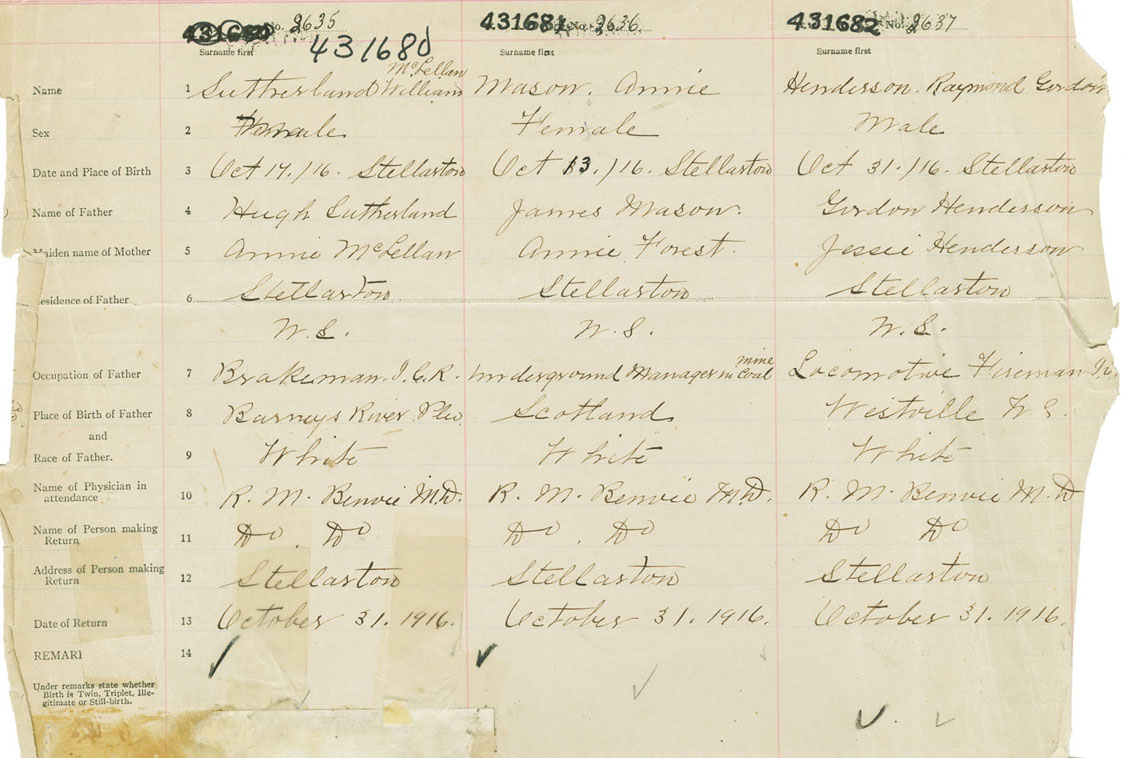 No. 2635 431681 No. 2636 431682 No. 2637
431680
Surname first Surname first Surname first
McLellan
Name 1 Sutherland William Mason. Annie Henderson. Raymond Gordon
Sex 2 male Female Male
Date and Place of Birth 3 Oct 17./16. Stellarton Oct 13./16. Stellarton Oct 31./16. Stellarton
Name of Father 4 Hugh Sutherland James Mason. Gordon Henderson
Maiden name of Mother 5 Annie McLellan Annie Forest. Jessie Henderson
esidence of Father 6 Stellarton Stellarton Stellarton
N.S. N.S. N.S.
mine
Occupation of Father 7 Brakeman. I.C.R. Underground Manager in Coal Locomotive Fireman
Place of Birth of Father 8 Barneys River Pictou Scotland Westville N S.
and
Race of Father. 9 White White White
Name of Physician in
attendance 10 R. M. Benvie M.D. R. M. Benvie M.D. R. M. Benvie M.D
Name of Person making
Return 11 Do . Do Do . Do Do Do
Address of Person making
Return 12 Stellarton Stellarton Stellarton
Date of Return 13 October 31. 1916. October 31. 1916. October 31. 1916.
REMAR 14
Under remarks state whether
Birth is Twin, Triplet, Ille-
gitimate or Still-birth.